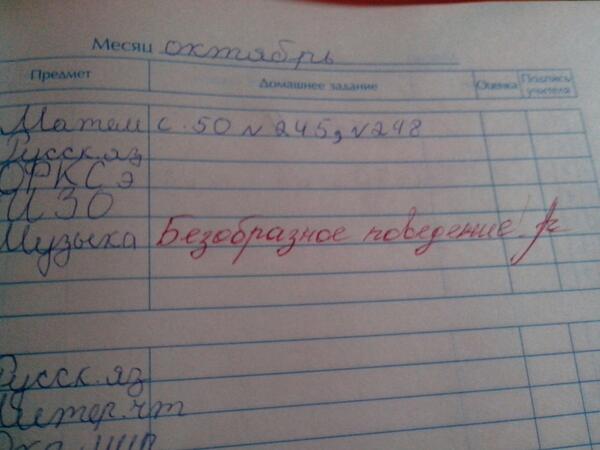 Месяц октябрь
Предмет Домашнее задание Оценка Подпись учителя
Матем с. 50 № 245, № 248
Русск. яз
ОРКСЭ
ИЗО
Музыка Безобразное поведение!
Русск. яз
Литер. чт